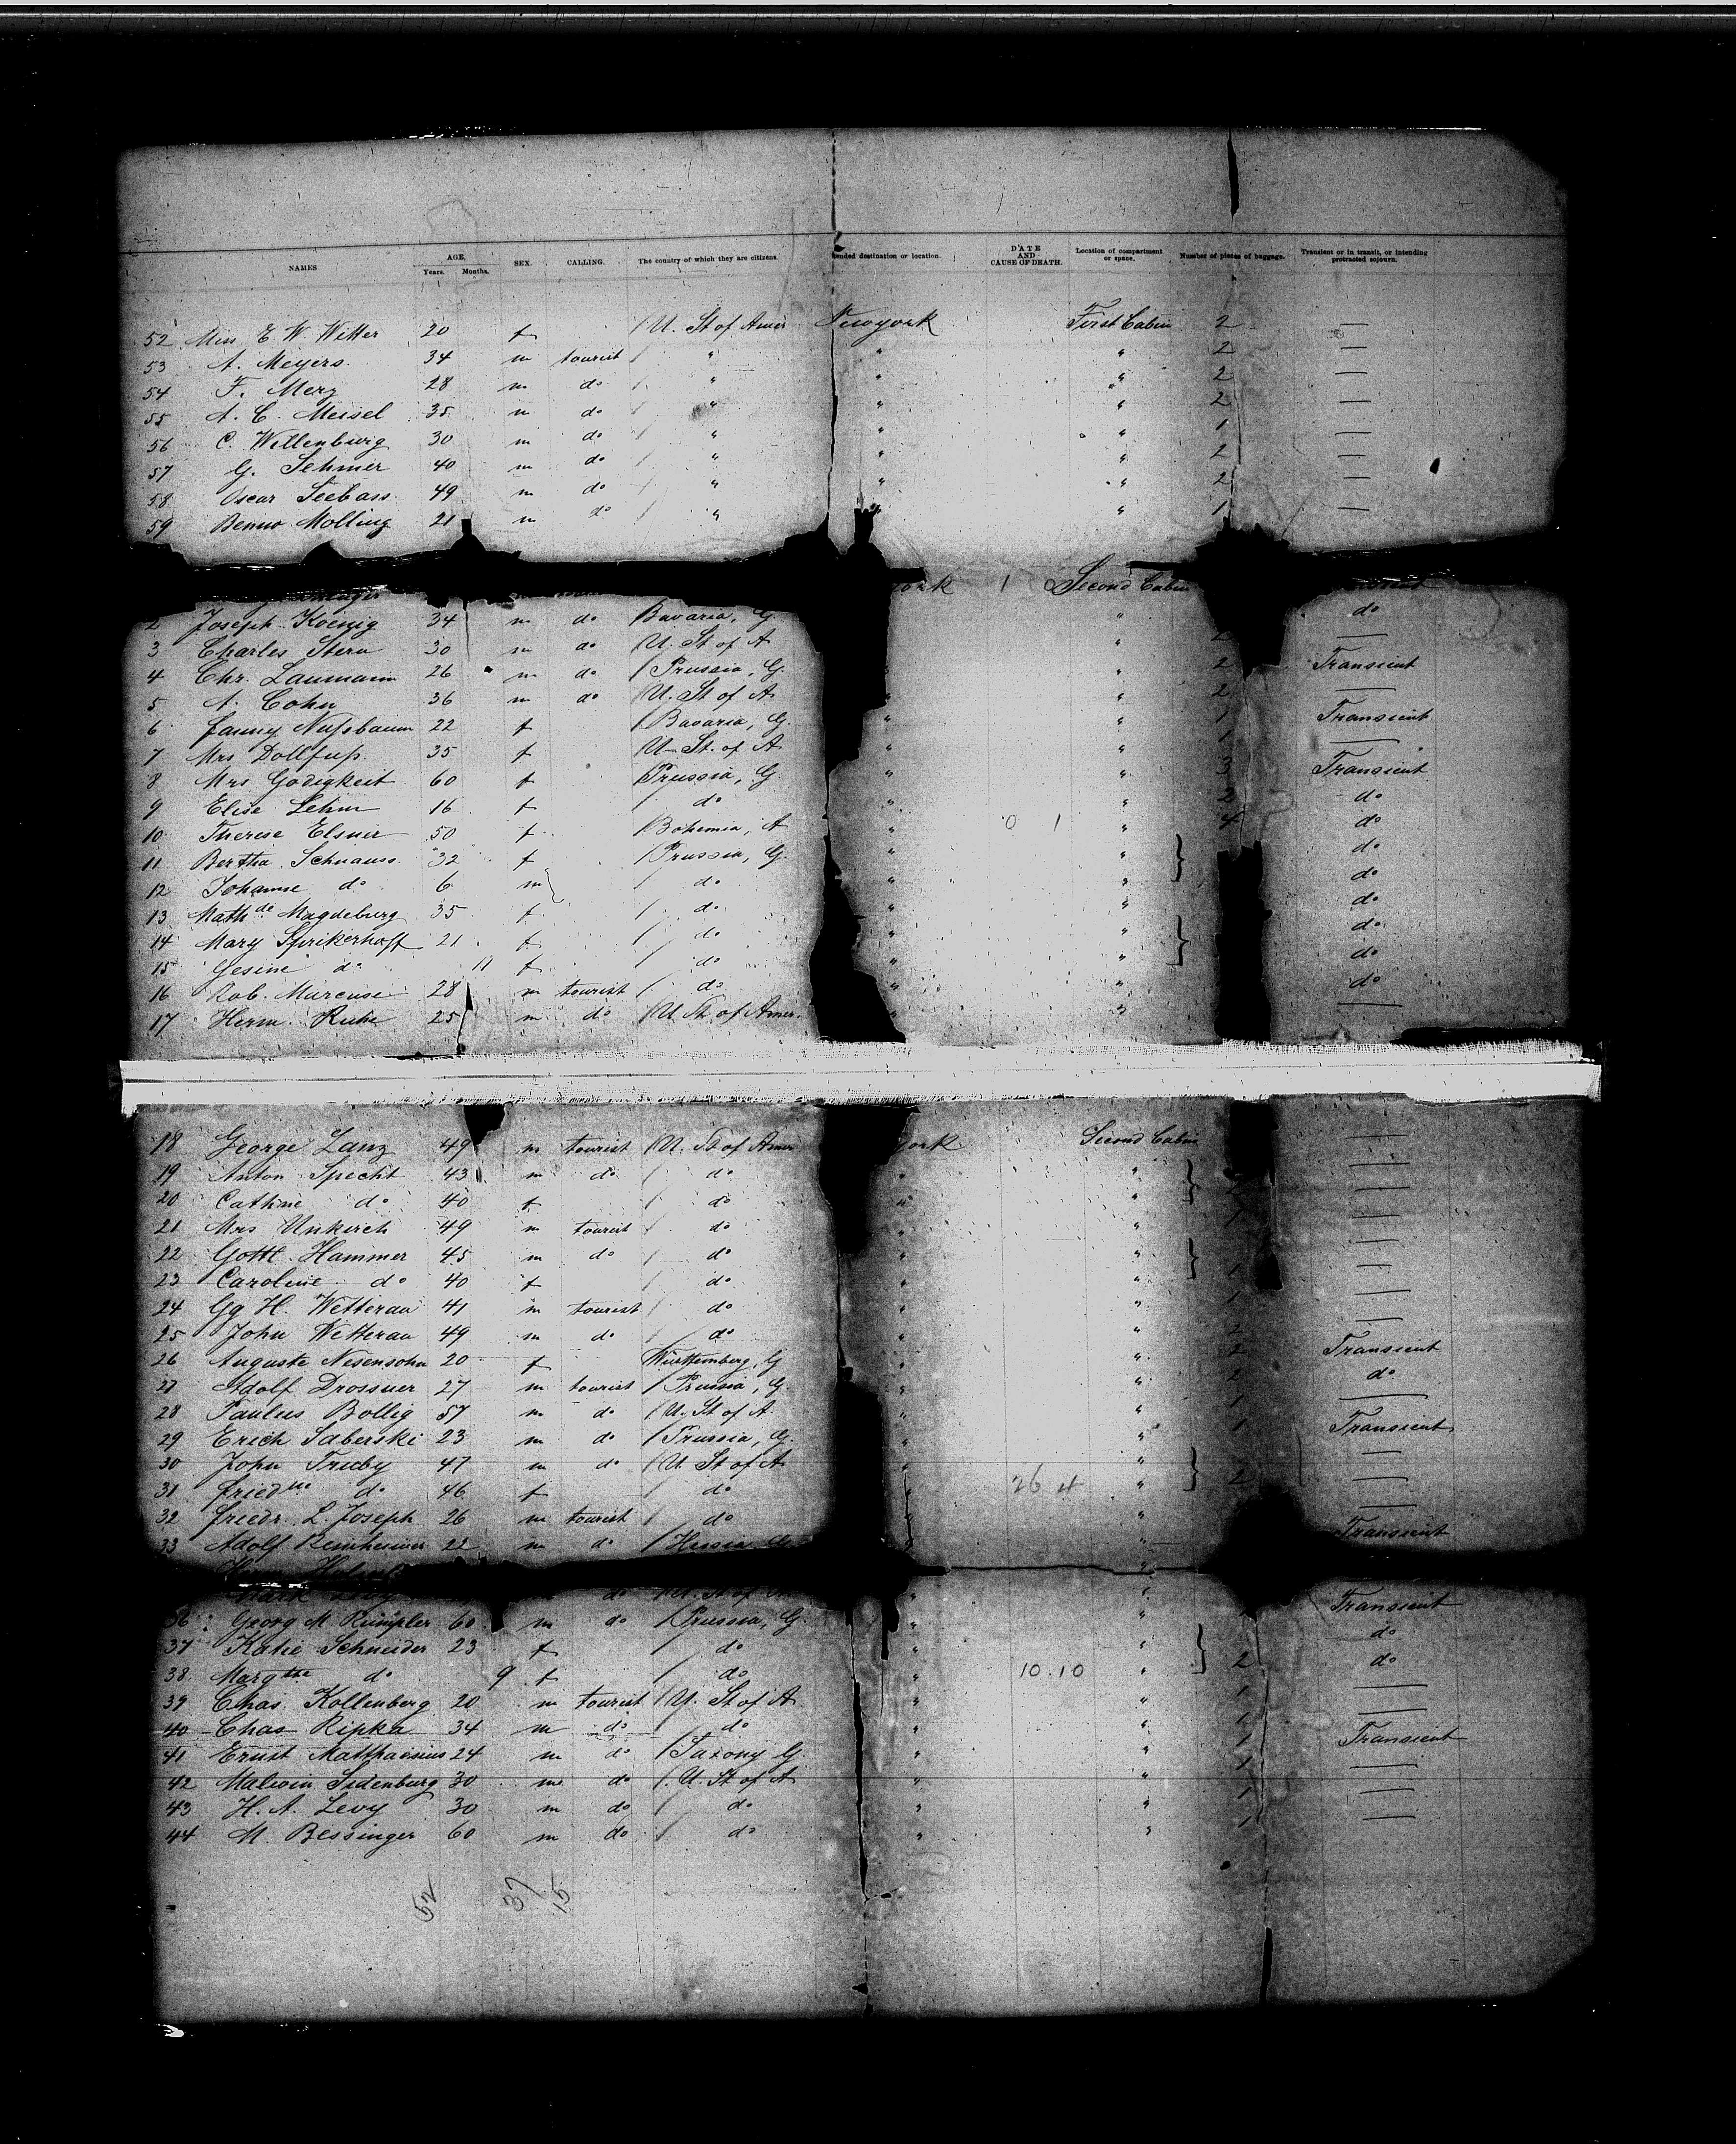 NAMES AGE, Years. Months. SEX. CALLING. The country of which they are citizens. ended destination or location. DATE AND CAUSE OF DEATH. Location of compartment or space. Number of pieces of baggage. Transient or in transit, or intending protracted sojourn.
52 Miss E W. Witter 20 f / U. St of Amer Newyork First Cabin 2 —
53 A. Meyers 34 m tourist / " " " 2 —
54 F. Merz 28 m do / " " " 2 —
55 A. C. Meisel 35 m do / " " " 2 —
56 C. Willenburg 30 m do / " " " 1 —
57 G. Sehmer 40 m do / " " " 2 —
58 Oscar Seebass 49 m do / " " " 2 —
59 Benno Molling 21 m do / " " " 1 —
york 1 Second Cabin
2 Joseph Koenig 34 m do Bavaria, G. " do
3 Charles Stern 30 m do / U. St of A " 2 —
4 Chr. Laumann 26 m do / Prussia, G. " " 2 Transient
5 A. Cohn 36 m do / U. St of A " " 2 —
6 Fanny Nußbaum 22 f / Bavaria, G. " " 1 Transient
7 Mrs Dollfuß 35 f U. St. of A " " 1 —
8 Mrs Godigkeit 60 f Prussia, G. " " 3 Transient
9 Elise Lehm 16 f / do " " 2 do
10 Therese Elsner 50 f / Bohemia, A " 0 1 " 4 do
11 Bertha Schnauss 32 f / Prussia, G. " " do
12 Johanne do 6 m / do " " do
13 Mathde Magdeburg 35 f / do " " do
14 Mary Sprikerhoff 21 f / do " " do
15 Gesine do 11 f / do " " do
16 Rob. Marcuse 28 m tourist / do " " do
17 Herm. Ruhe 25 m do / U St of Amer. " " —
18 George Lanz 49 m tourist / U. St of Amer york Second Cabin —
19 Anton Specht 43 m do / do " " —
20 Cathne do 40 f / do " " —
21 Mrs Unkirch 49 m tourist / do " " 1 —
22 Gottl Hammer 45 m do / do " " —
23 Caroline do 40 f / do " " 1 —
24 Gg H. Wetterau 41 m tourist / do " " 1 —
25 John Wetterau 49 m do / do " " 2 —
26 Auguste Nesensohn 20 f Württemberg, G " " 2 Transient
27 Adolf Drossner 27 m tourist / Prussia, G. " " 2 do
28 Paulus Bollig 57 m do / U. St of A. " " 1 —
29 Erich Saberski 23 m do / Prussia, G. " " 1 Transient
30 John Truby 47 m do / U. St of A " " —
31 Friedke do 46 f / do " 26 4 " 2 —
32 Friedr. L. Joseph 26 m tourist / do " " —
33 Adolf Reinheimer 22 m do / Hessia G. " " Transient
do / U. St of " "
36 Georg M. Rümpler 60 m do / Prussia, G. " " Transient
37 Katie Schneider 23 f / do " " do
38 Margthe do 9 f / do " 10.10 " 2 do
39 Chas. Kollenberg 20 m tourist / U. St of A " " 1 —
40 Chas Ripka 34 m do / do " " 1 —
41 Ernst Matthaesius 24 m do / Saxony G. " " 1 Transient
42 Malwin Sidenburg 30 m do / U. St of A " " 1 —
43 H. A. Levy 30 m do / do " " 1 —
44 M. Bessinger 60 m do / do " " 1 —
52 37 15